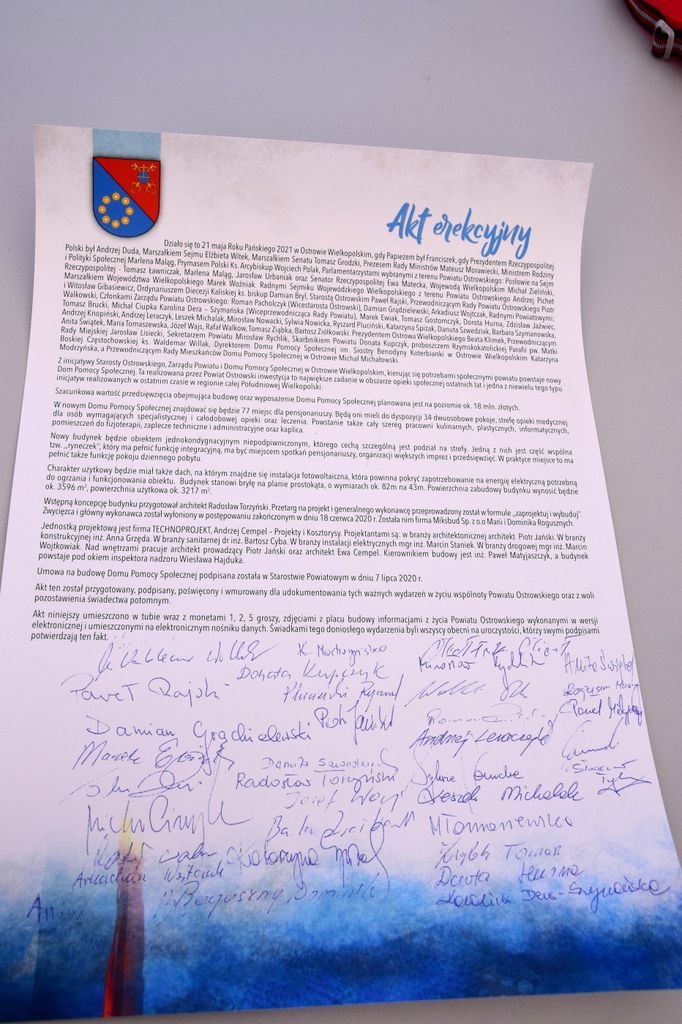 Akt erekcyjny
Działo się to 21 maja Roku Pańskiego 2021 w Ostrowie Wielkopolskim, gdy Papieżem był Franciszek, gdy Prezydentem Rzeczypospolitej
Polski był Andrzej Duda, Marszałkiem Sejmu Elżbieta Witek, Marszałkiem Senatu Tomasz Grodzki, Prezesem Rady Ministrów Mateusz Morawiecki, Ministrem Rodziny
i Polityki Społecznej Marlena Maląg, Prymasem Polski Ks. Arcybiskup Wojciech Polak, Parlamentarzystami wybranymi z terenu Powiatu Ostrowskiego: Posłowie na Sejm
Rzeczypospolitej - Tomasz Ławniczak, Marlena Maląg, Jarosław Urbaniak oraz Senator Rzeczypospolitej Ewa Matecka, Wojewodą Wielkopolskim Michał Zieliński,
Marszałkiem Województwa Wielkopolskiego Marek Woźniak, Radnymi Sejmiku Wojewódzkiego Wielkopolskiego z terenu Powiatu Ostrowskiego Andrzej Pichet
i Witosław Gibasiewicz, Ordynariuszem Diecezji Kaliskiej ks. biskup Damian Bryl, Starostą Ostrowskim Paweł Rajski, Przewodniczącym Rady Powiatu Ostrowskiego Piotr
Walkowski, Członkami Zarządu Powiatu Ostrowskiego: Roman Pacholczyk (Wicestarosta Ostrowski), Damian Grądzielewski, Arkadiusz Wojtczak, Radnymi Powiatowymi:
Tomasz Brucki, Michał Ciupka Karolina Dera - Szymańska (Wiceprzewodnicząca Rady Powiatu), Marek Ewiak, Tomasz Gostomczyk, Dorota Hurna, Zdzisław Jaźwiec,
Andrzej Knopiński, Andrzej Leraczyk, Leszek Michalak, Mirosław Nowacki, Sylwia Nowicka, Ryszard Pluciński, Katarzyna Spiżak, Danuta Szwedziak, Barbara Szymanowska,
Anita Świątek, Maria Tomaszewska, Józef Wajs, Rafał Walkow, Tomasz Ziąbka, Bartosz Ziółkowski. Prezydentem Ostrowa Wielkopolskiego Beata Klimek, Przewodniczącym
Rady Miejskiej Jarosław Lisiecki, Sekretarzem Powiatu Mirosław Rychlik, Skarbnikiem Powiatu Donata Kupczyk, proboszczem Rzymskokatolickiej Parafii pw. Matki
Boskiej Częstochowskiej ks. Waldemar Willak, Dyrektorem Domu Pomocy Społecznej im. Siostry Benodyny Koterbianki w Ostrowie Wielkopolskim Katarzyna
Modrzyńska, a Przewodniczącym Rady Mieszkańców Domu Pomocy Społecznej w Ostrowie Michał Michałowski.
Z inicjatywy Starosty Ostrowskiego, Zarządu Powiatu i Domu Pomocy Społecznej w Ostrowie Wielkopolskim, kierując się potrzebami społecznymi powiatu powstaje nowy
Dom Pomocy Społecznej. Ta realizowana przez Powiat Ostrowski inwestycja to największe zadanie w obszarze opieki społecznej ostatnich lat i jedna z niewielu tego typu
inicjatyw realizowanych w ostatnim czasie w regionie całej Południowej Wielkopolski.
Szacunkowa wartość przedsięwzięcia obejmująca budowę oraz wyposażenie Domu Pomocy Społecznej planowana jest na poziomie ok. 18 mln. złotych.
W nowym Domu Pomocy Społecznej znajdować się będzie 77 miejsc dla pensjonariuszy. Będą oni mieli do dyspozycji 34 dwuosobowe pokoje, strefę opieki medycznej
dla osób wymagających specjalistycznej i całodobowej opieki oraz leczenia. Powstanie także cały szereg pracowni kulinarnych, plastycznych, informatycznych,
pomieszczeń do fizjoterapii, zaplecze techniczne i administracyjne oraz kaplica.
Nowy budynek będzie obiektem jednokondygnacyjnym niepodpiwniczonym, którego cechą szczególną jest podział na strefy. Jedną z nich jest część wspólna
tzw. „ryneczek", który ma pełnić funkcję integracyjną, ma być miejscem spotkań pensjonariuszy, organizacji większych imprez i przedsięwzięć. W praktyce miejsce to ma
pełnić także funkcję pokoju dziennego pobytu.
Charakter użytkowy będzie miał także dach, na którym znajdzie się instalacja fotowoltaiczna, która powinna pokryć zapotrzebowanie na energię elektryczną potrzebną
do ogrzania i funkcjonowania obiektu. Budynek stanowi bryłę na planie prostokąta, o wymiarach ok. 82m na 43m. Powierzchnia zabudowy budynku wynosić będzie
ok. 3596 m², powierzchnia użytkowa ok. 3217 m².
Wstępną koncepcję budynku przygotował architekt Radosław Torzyński. Przetarg na projekt i generalnego wykonawcę przeprowadzony został w formule „zaprojektuj i wybuduj".
Zwycięzca i główny wykonawca został wyłoniony w postępowaniu zakończonym w dniu 18 czerwca 2020 r. Została nim firma Miksbud Sp. z o.o Marii i Dominika Rogusznych.
Jednostką projektową jest firma TECHNOPROJEKT, Andrzej Cempel - Projekty i Kosztorysy. Projektantami są: w branży architektonicznej architekt Piotr Jański. W branży
konstrukcyjnej inż. Anna Grzęda. W branży sanitarnej dr inż. Bartosz Cyba. W branży instalacji elektrycznych mgr inż. Marcin Staniek. W branży drogowej mgr inż. Marcin
Wojtkowiak. Nad wnętrzami pracuje architekt prowadzący Piotr Jański oraz architekt Ewa Cempel. Kierownikiem budowy jest inż. Paweł Matyjaszczyk, a budynek
powstaje pod okiem inspektora nadzoru Wiesława Hajduka.
Umowa na budowę Domu Pomocy Społecznej podpisana została w Starostwie Powiatowym w dniu 7 lipca 2020 r.
Akt ten został przygotowany, podpisany, poświęcony i wmurowany dla udokumentowania tych ważnych wydarzeń w życiu wspólnoty Powiatu Ostrowskiego oraz z woli
pozostawienia świadectwa potomnym.
Akt niniejszy umieszczono w tubie wraz z monetami 1, 2, 5 groszy, zdjęciami z placu budowy informacjami z życia Powiatu Ostrowskiego wykonanymi w wersji
elektronicznej i umieszczonymi na elektronicznym nośniku danych. Świadkami tego doniosłego wydarzenia byli wszyscy obecni na uroczystości, którzy swymi podpisami
potwierdzają ten fakt.
Donata Kupczyk
Mirosław Rychlik
Anita Świątek
Paweł Rajski
Pluciński Ryszard
Damian Grądzielewski
Piotr Jański
Andrzej Leraczyk
Danuta Szwedziak
Radosław Torzyński
Józef Wajs
Leszek Michalak
Katarzyna
Ziąbka Tomasz
Arkadiusz Wojtczak
Dorota Hurna
Karolina Dera-Szymańska